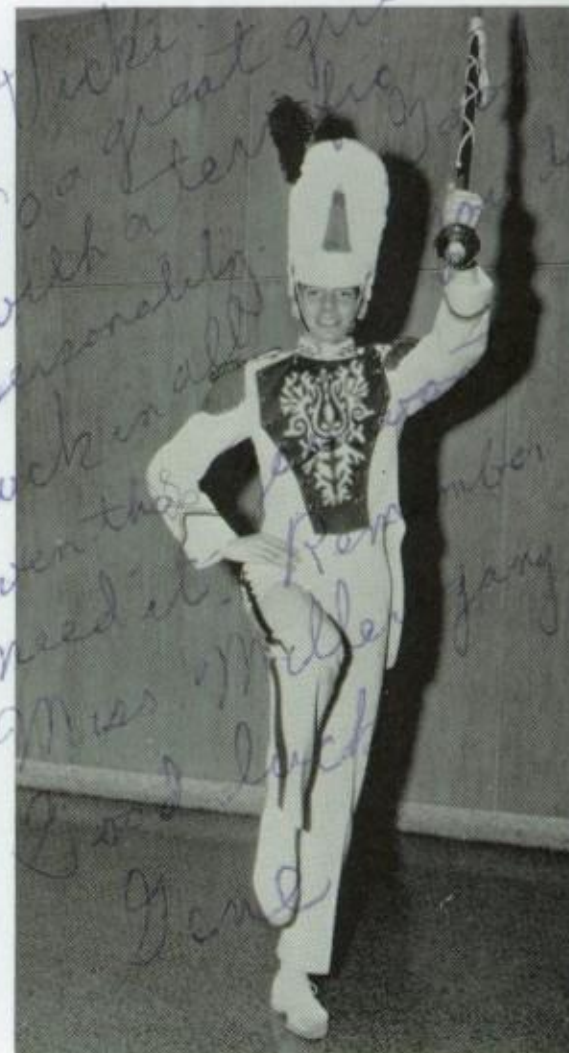 Vicki:
To a great girl
with a terrific
personality. Good
luck in all
even tho you won't
need it. Remember
Miss Miller gang.
Good luck
Gene